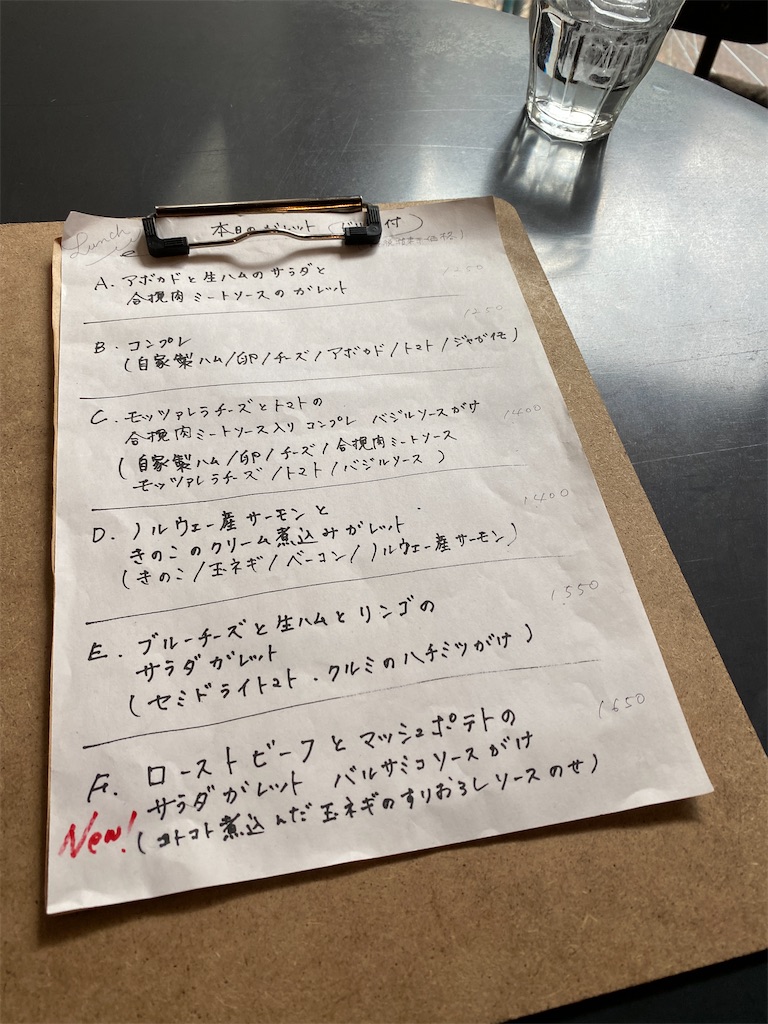 Lunch
本日のガレット
付
A. アボカドと生ハムのサラダと 1250
合挽肉ミートソースのガレット
B. コンプレ 1250
(自家製ハム/卵/チーズ/アボカド/トマト/ジャガイモ)
C. モッツァレラチーズとトマトの
合挽肉ミートソース入り コンプレ バジルソースがけ 1400
(自家製ハム/卵/チーズ/合挽肉ミートソース
モッツァレラチーズ/トマト/バジルソース)
D. ノルウェー産サーモンと 1400
きのこのクリーム煮込みガレット
(きのこ/玉ネギ/ベーコン/ノルウェー産サーモン)
E. ブルーチーズと生ハムとリンゴの 1550
サラダガレット
(セミドライトマト・クルミのハチミツがけ)
F. ローストビーフとマッシュポテトの 1650
サラダガレット バルサミコソースがけ
New! (コトコト煮込んだ玉ネギのすりおろしソースのせ)